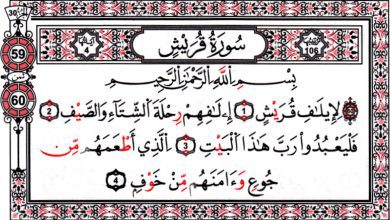 سُورَةُ قُرَيْشٍ
106
4
59
60
بِسْمِ اللَّهِ الرَّحْمَٰنِ الرَّحِيمِ
لِإِيلَافِ قُرَيْشٍ 1 إِۦلَافِهِمْ رِحْلَةَ الشِّتَاءِ وَالصَّيْفِ 2
فَلْيَعْبُدُوا رَبَّ هَٰذَا الْبَيْتِ 3 الَّذِي أَطْعَمَهُم مِّن
جُوعٍ وَءَامَنَهُم مِّنْ خَوْفٍ 4